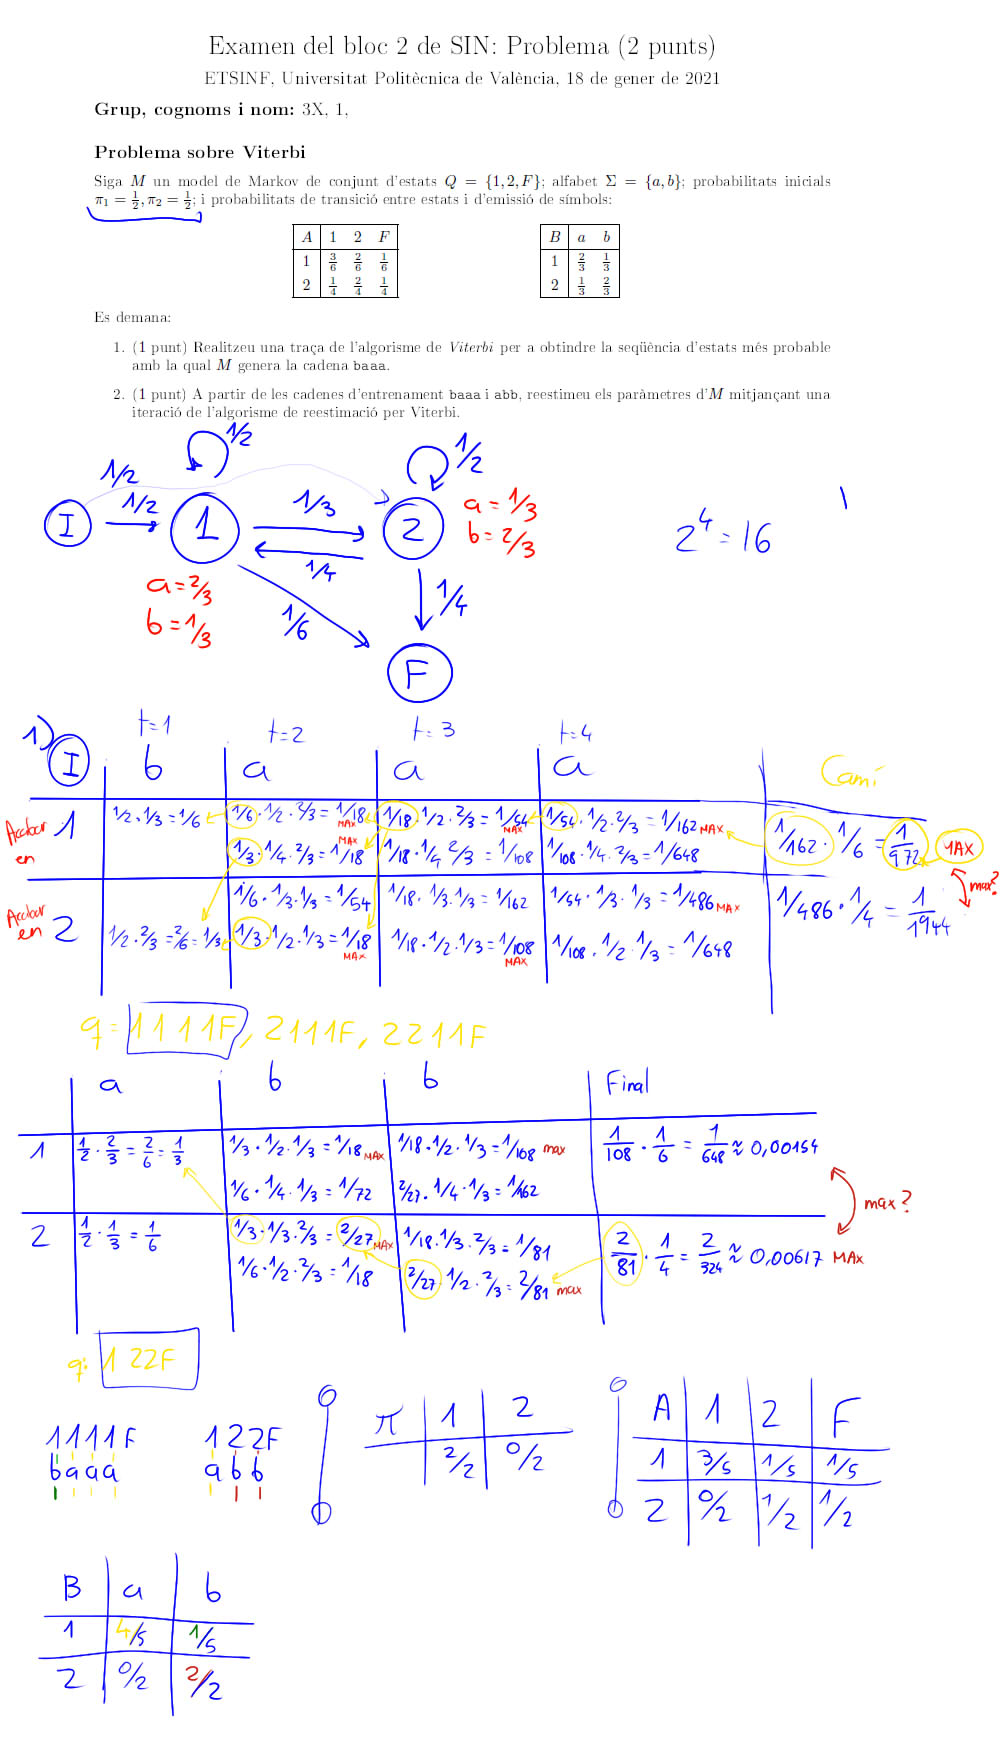 Examen del bloc 2 de SIN: Problema (2 punts)
ETSINF, Universitat Politècnica de València, 18 de gener de 2021
Grup, cognoms i nom: 3X, 1,
Problema sobre Viterbi
Siga M un model de Markov de conjunt d'estats Q = {1, 2, F}; alfabet Σ = {a, b}; probabilitats inicials
π₁ = 1/2, π₂ = 1/2; i probabilitats de transició entre estats i d'emissió de símbols:
A 1 2 F
1 3/6 2/6 1/6
2 1/4 2/4 1/4
B a b
1 2/3 1/3
2 1/3 2/3
Es demana:
1. (1 punt) Realitzeu una traça de l'algorisme de Viterbi per a obtindre la seqüència d'estats més probable
amb la qual M genera la cadena baaa.
2. (1 punt) A partir de les cadenes d'entrenament baaa i abb, reestimeu els paràmetres d'M mitjançant una
iteració de l'algorisme de reestimació per Viterbi.
1/2 1/2
1/2 1/2
I 1 1/3 2
1/4
a = 1/3
b = 2/3
2⁴ = 16
a = 2/3
b = 1/3
1/6 1/4
F
1) t=1 t=2 t=3 t=4
I b a a a Camí
Acabar en 1
1/2 · 1/3 = 1/6
1/6 · 1/2 · 2/3 = 1/18 MAX
1/3 · 1/4 · 2/3 = 1/18 MAX
1/18 · 1/2 · 2/3 = 1/54 MAX
1/18 · 1/4 2/3 = 1/108
1/54 · 1/2 · 2/3 = 1/162 MAX
1/108 · 1/4 · 2/3 = 1/648
1/162 · 1/6 = 1/972 MAX
max?
Acabar en 2
1/2 · 2/3 = 2/6 = 1/3
1/6 · 1/3 · 1/3 = 1/54
1/3 · 1/2 · 1/3 = 1/18 MAX
1/18 · 1/3 · 1/3 = 1/162
1/18 · 1/2 · 1/3 = 1/108 MAX
1/54 · 1/3 · 1/3 = 1/486 MAX
1/108 · 1/2 · 1/3 = 1/648
1/486 · 1/4 = 1/1944
q = 1111F, 2111F, 2211F
a b b Final
1
1/2 · 2/3 = 2/6 = 1/3
1/3 · 1/2 · 1/3 = 1/18 MAX
1/6 · 1/4 · 1/3 = 1/72
1/18 · 1/2 · 1/3 = 1/108 max
2/27 · 1/4 · 1/3 = 1/162
1/108 · 1/6 = 1/648 ≈ 0,00154
max?
2
1/2 · 1/3 = 1/6
1/3 · 1/3 · 2/3 = 2/27 MAX
1/6 · 1/2 · 2/3 = 1/18
1/18 · 1/3 · 2/3 = 1/81
2/27 · 1/2 · 2/3 = 2/81 max
2/81 · 1/4 = 2/324 ≈ 0,00617 MAX
q: 122F
1111F 122F
baaa abb
π 1 2
2/2 0/2
A 1 2 F
1 3/5 1/5 1/5
2 0/2 1/2 1/2
B a b
1 4/5 1/5
2 0/2 2/2